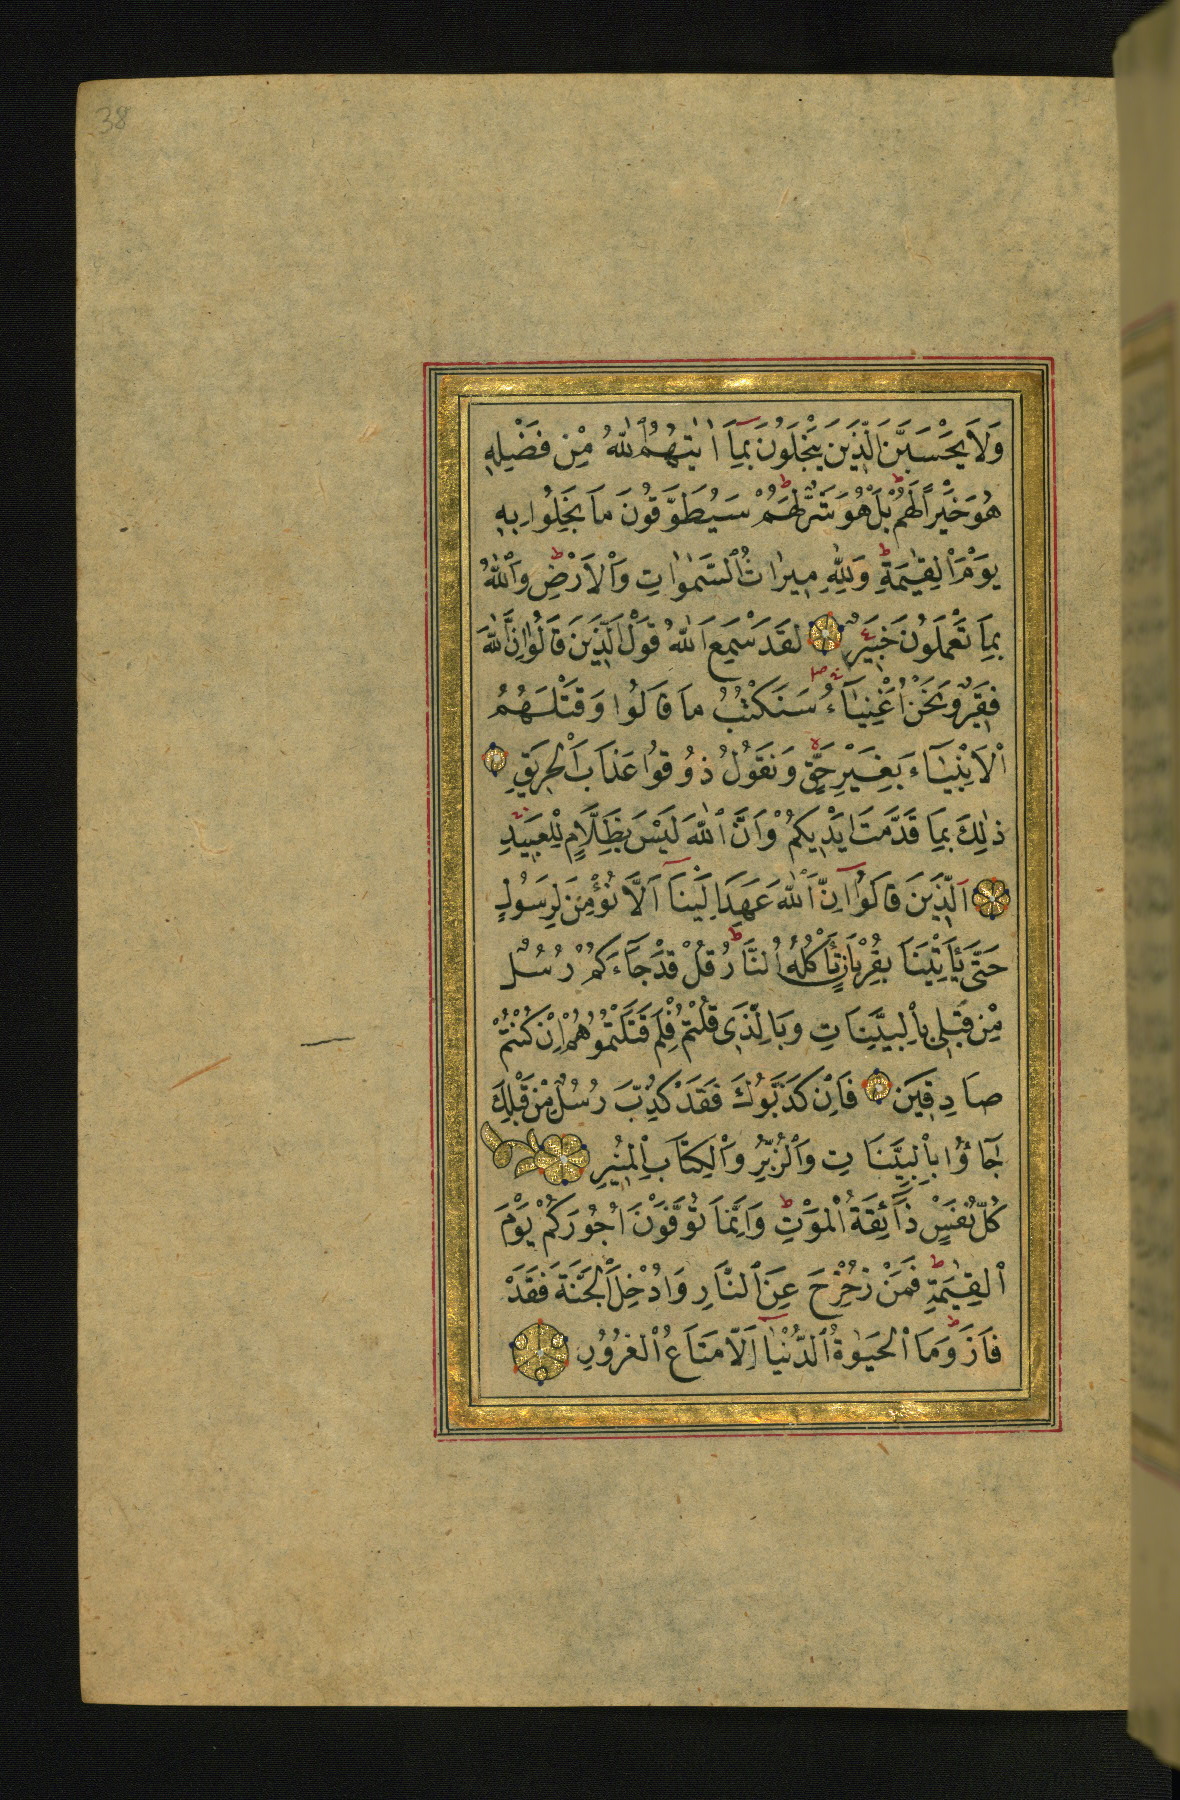 38
وَلَا يَحْسَبَنَّ الَّذِينَ يَبْخَلُونَ بِمَا اٰتٰيهُمُ اللّٰهُ مِنْ فَضْلِهِ
هُوَ خَيْرًا لَهُمْ بَلْ هُوَ شَرٌّ لَهُمْ سَيُطَوَّقُونَ مَا بَخِلُوا بِهِ
يَوْمَ الْقِيٰمَةِ وَلِلّٰهِ مِيرَاثُ السَّمٰوَاتِ وَالْاَرْضِ وَاللّٰهُ
بِمَا تَعْمَلُونَ خَبِيرٌ لَقَدْ سَمِعَ اللّٰهُ قَوْلَ الَّذِينَ قَالُوا اِنَّ اللّٰهَ
فَقِيرٌ وَنَحْنُ اَغْنِيَاءُ سَنَكْتُبُ مَا قَالُوا وَقَتْلَهُمُ
الْاَنْبِيَاءَ بِغَيْرِ حَقٍّ وَنَقُولُ ذُوقُوا عَذَابَ الْحَرِيقِ
ذٰلِكَ بِمَا قَدَّمَتْ اَيْدِيكُمْ وَاَنَّ اللّٰهَ لَيْسَ بِظَلَّامٍ لِلْعَبِيدِ
اَلَّذِينَ قَالُوا اِنَّ اللّٰهَ عَهِدَ اِلَيْنَا اَلَّا نُؤْمِنَ لِرَسُولٍ
حَتّٰى يَأْتِيَنَا بِقُرْبَانٍ تَأْكُلُهُ النَّارُ قُلْ قَدْ جَاءَكُمْ رُسُلٌ
مِنْ قَبْلِى بِالْبَيِّنَاتِ وَبِالَّذِى قُلْتُمْ فَلِمَ قَتَلْتُمُوهُمْ اِنْ كُنْتُمْ
صَادِقِينَ فَاِنْ كَذَّبُوكَ فَقَدْ كُذِّبَ رُسُلٌ مِنْ قَبْلِكَ
جَاؤُا بِالْبَيِّنَاتِ وَالزُّبُرِ وَالْكِتَابِ الْمُنِيرِ
كُلُّ نَفْسٍ ذَائِقَةُ الْمَوْتِ وَاِنَّمَا تُوَفَّوْنَ اُجُورَكُمْ يَوْمَ
الْقِيٰمَةِ فَمَنْ زُحْزِحَ عَنِ النَّارِ وَاُدْخِلَ الْجَنَّةَ فَقَدْ
فَازَ وَمَا الْحَيٰوةُ الدُّنْيَا اِلَّا مَتَاعُ الْغُرُورِ